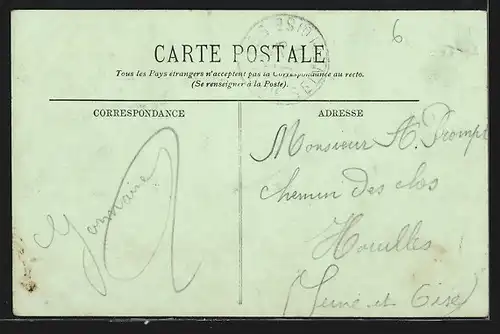 6
CARTE POSTALE
Tous les Pays étrangers n'acceptent pas la Correspondance au recto.
(Se renseigner à la Poste).
CORRESPONDANCE
ADRESSE
Monsieur A. Prompt
chemin des clos
Houilles
(Seine et Oise)
Germaine